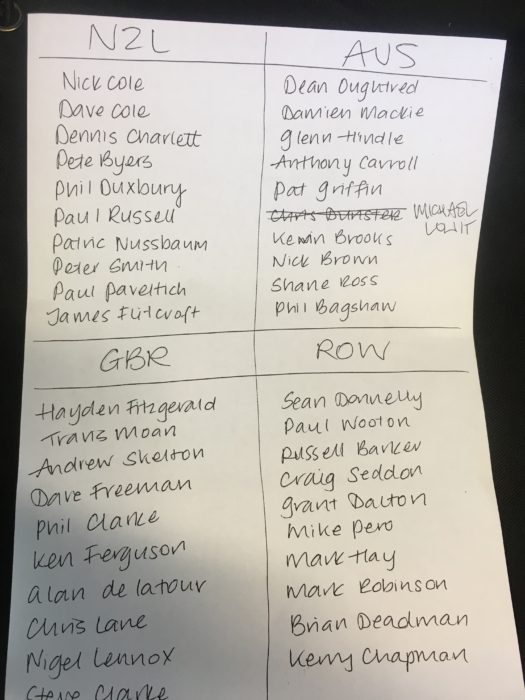 NZL
Nick Cole
Dave Cole
Dennis Charlett
Pete Byers
Phil Duxbury
Paul Russell
Patric Nussbaum
Peter Smith
Paul Paveltich
James Flitcroft
AUS
Dean Oughtred
Damien Mackie
Glenn Hindle
Anthony Carroll
Pat Griffin
Chris Dunster MICHAEL
Kevin Brooks
Nick Brown
Shane Ross
Phil Bagshaw
GBR
Hayden Fitzgerald
Moan
Andrew Skelton
Dave Freeman
Phil Clarke
Ken Ferguson
Alan de latour
Chris Lane
Nigel Lennox
Steve Clarke
ROW
Sean Donnelly
Paul Wooton
Russell Barker
Craig Seddon
Grant Dalton
Mike Pero
Mark Hay
Mark Robinson
Brian Deadman
Kerry Chapman